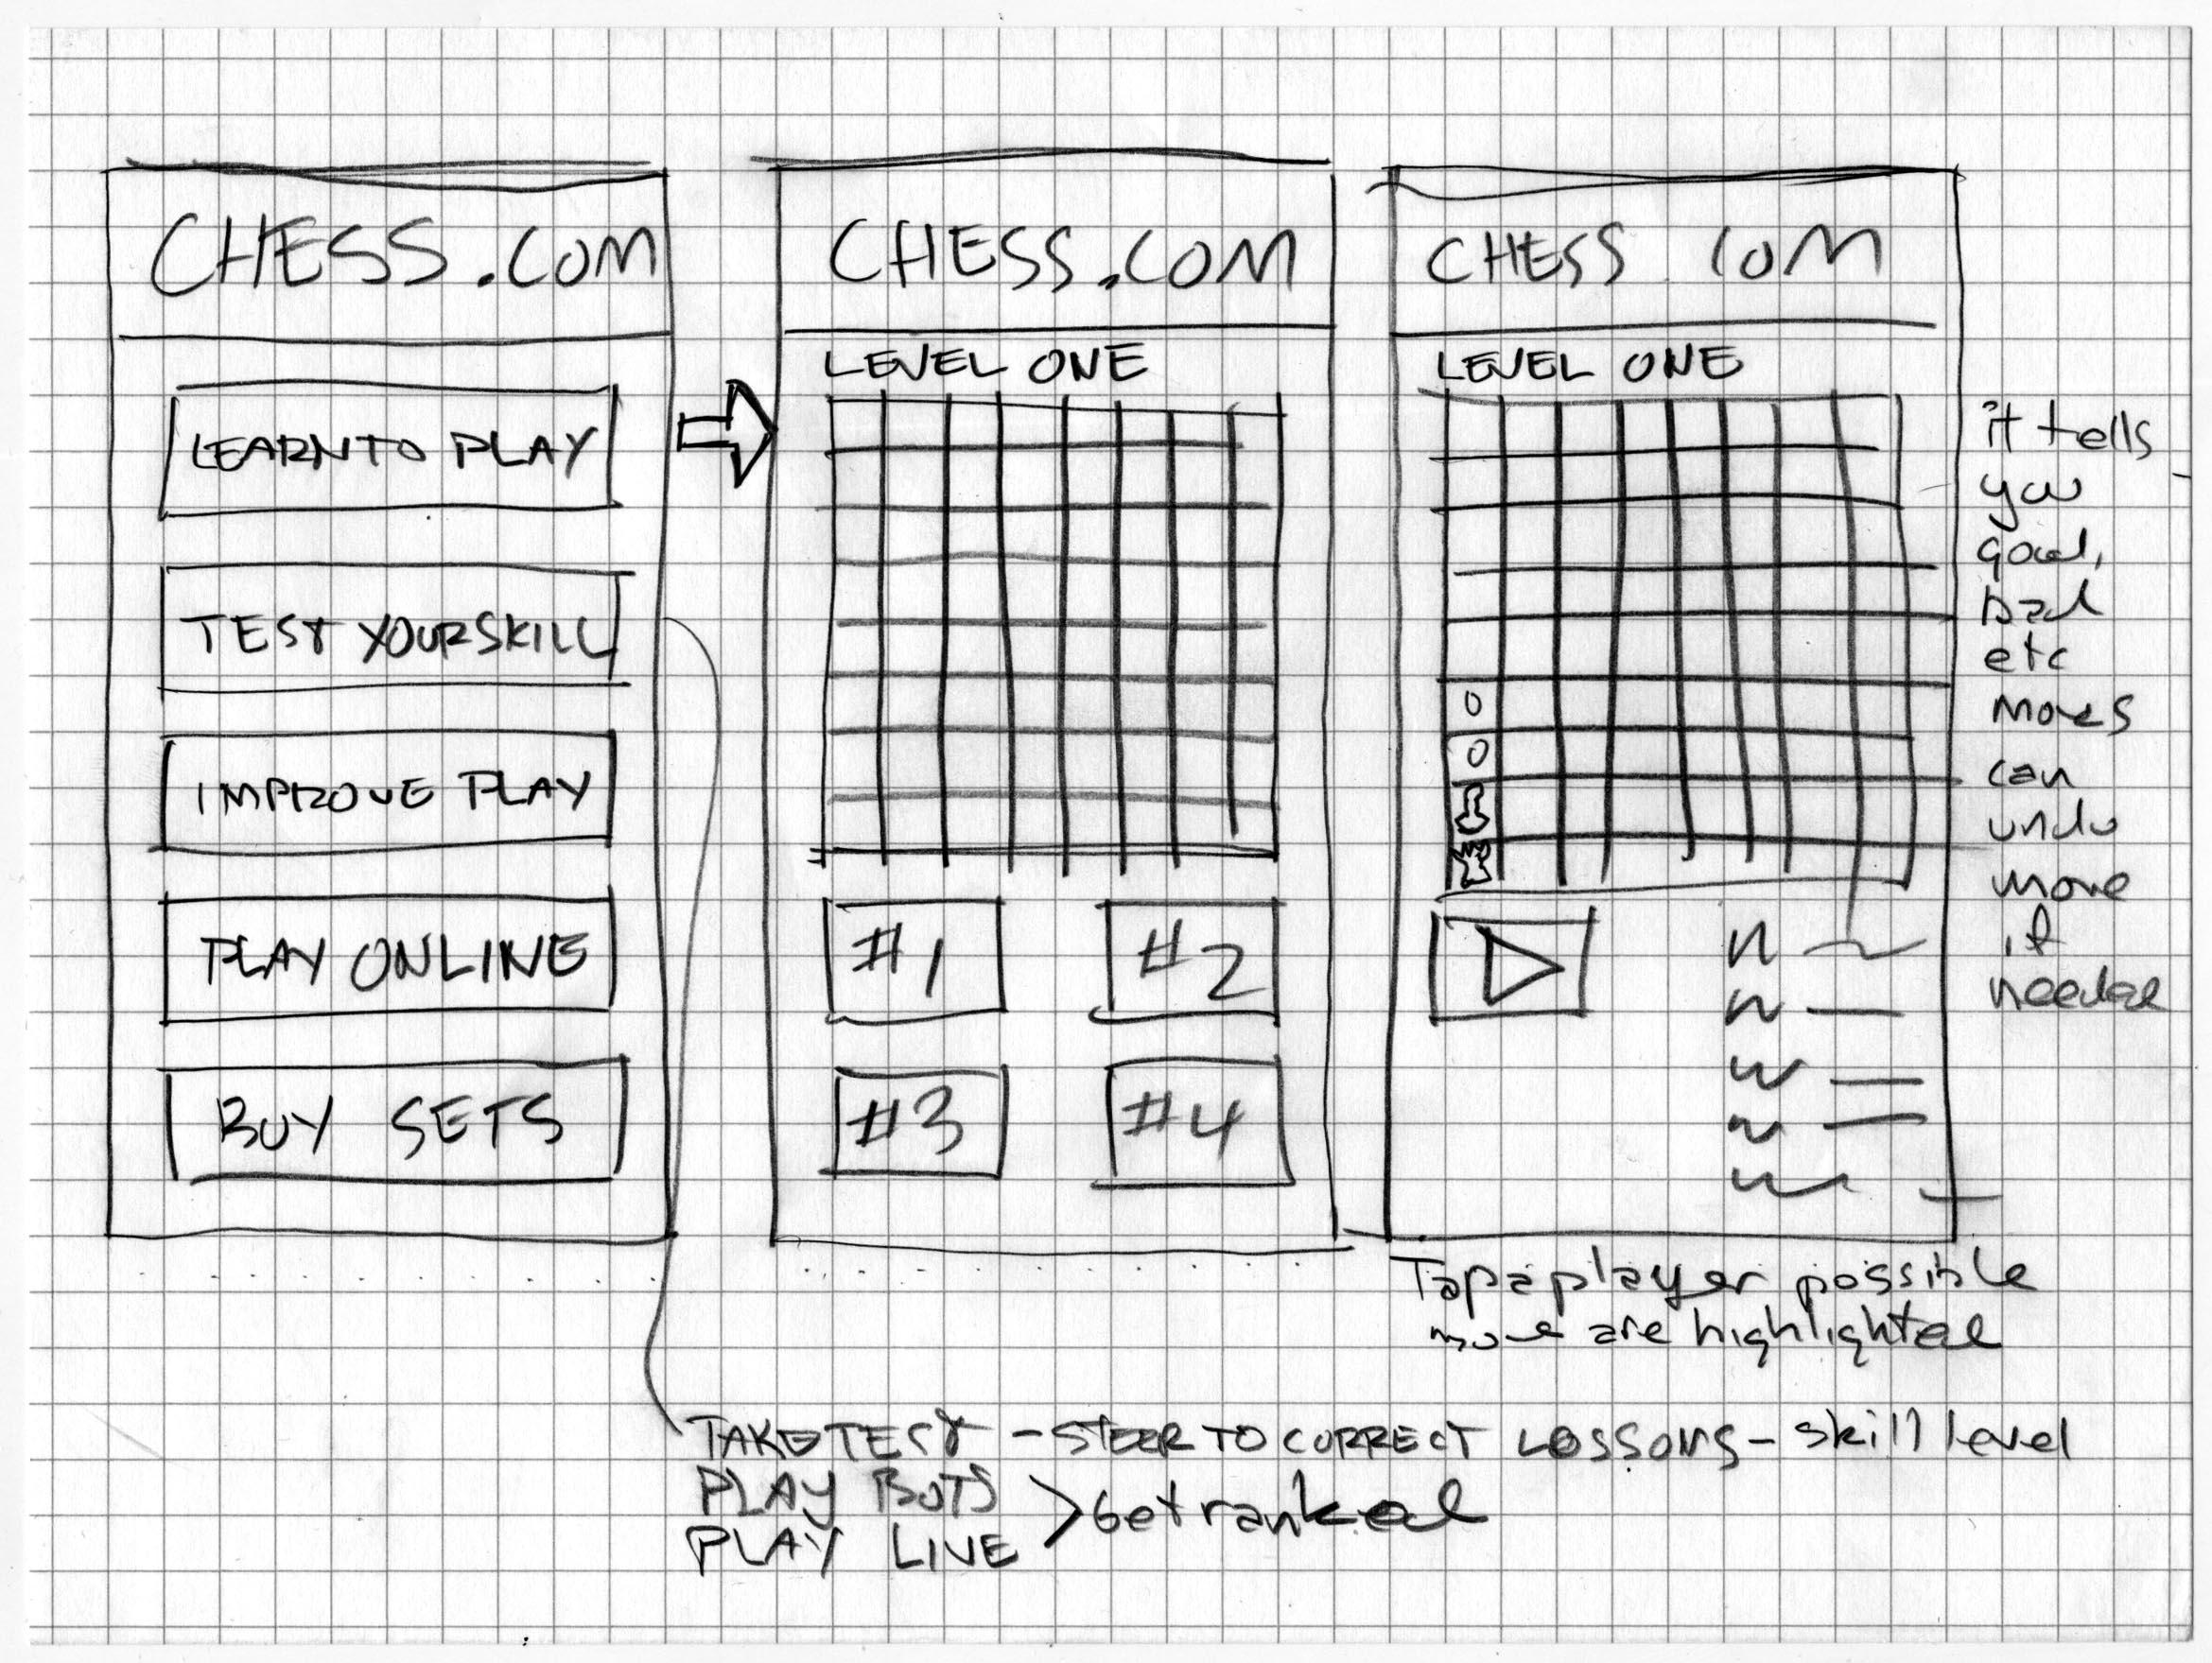 CHESS.COM
LEARN TO PLAY
TEST YOUR SKILL
IMPROVE PLAY
PLAY ONLINE
BUY SETS
CHESS.COM
LEVEL ONE
#1
#2
#3
#4
CHESS COM
LEVEL ONE
it tells
you
good,
bad
etc
moves
can
undo
move
if
needed
Tap a player possible
move are highlighted
TAKE TEST - STEER TO CORRECT LESSONS - skill level
PLAY BOTS
PLAY LIVE
> Get ranked